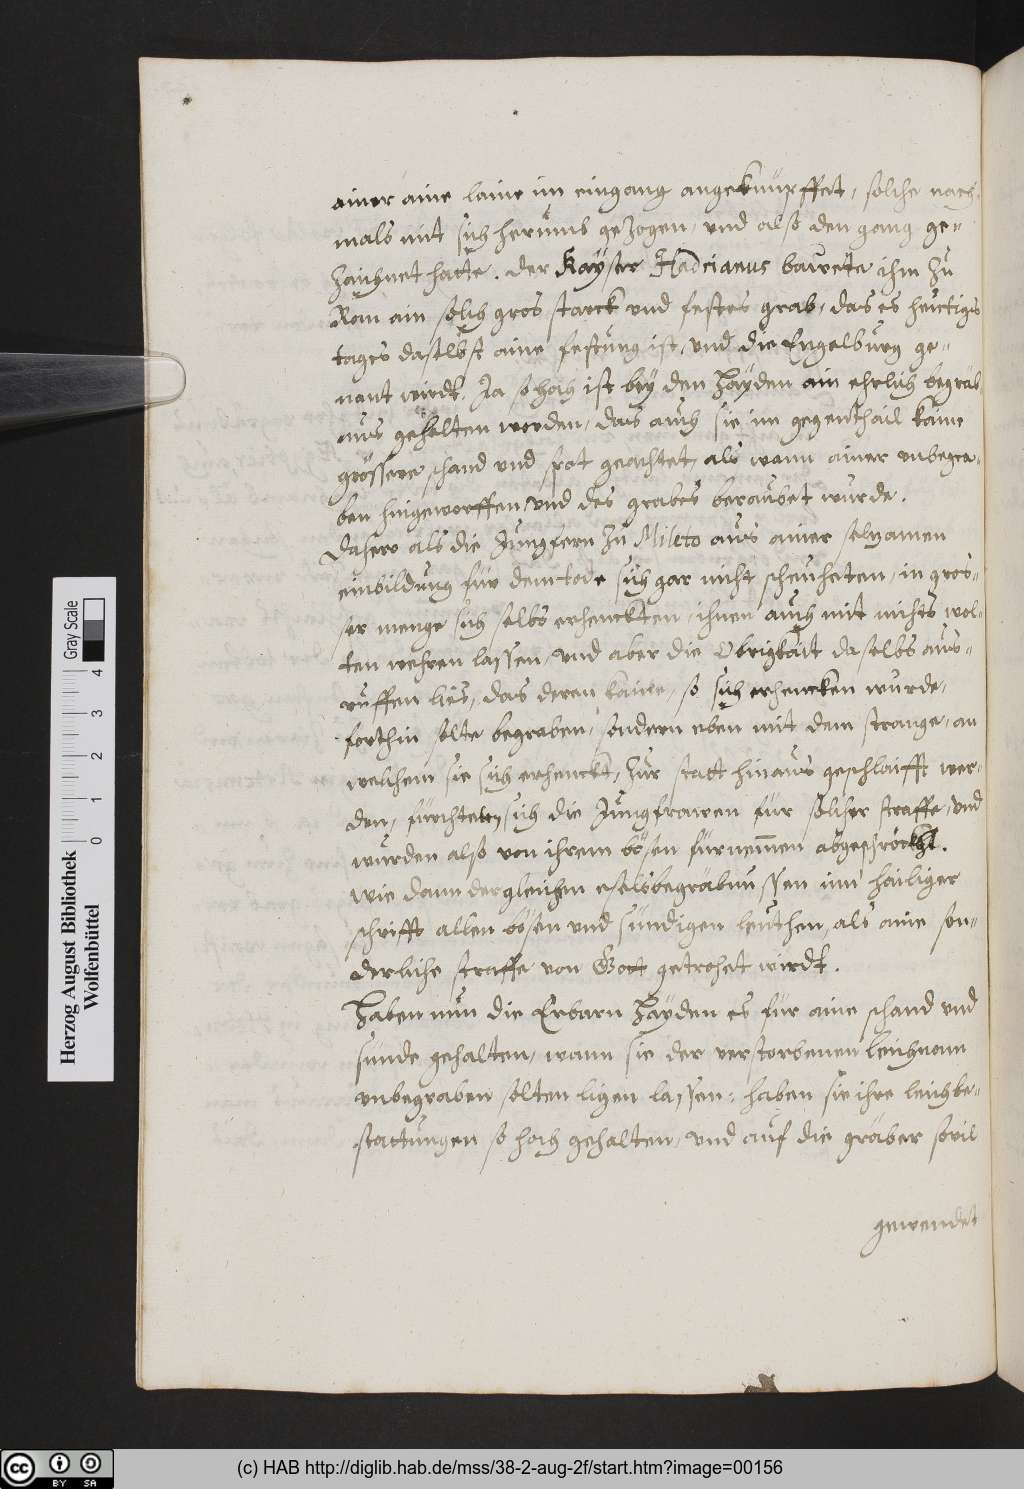 ainer aine laine im eingang angeknüpffet, solche nach-
mals mit sich herumb gezogen, und also den gang ge-
zaichnet hatte. Der Kayser Hadrianus bawete ihm zu
Rom ain solch gros starck und festes grab, das es heutigs
tages daselbst aine festung ist, und die Engelburg ge-
nant wirdt. Ja so hoch ist bey den Hayden ain ehrlich begräb-
nus gehalten worden, das auch sie im gegenthail kaine
grössere schand und spot geachtet, als wann ainer unbegra-
ben hingeworffen, und des grabes beraubet wurde.
Dahero als die Jungfern zu Mileto aus ainer selzamen
einbildung für dem tode sich gar nicht scheuheten, in gros-
ser menge sich selbs erhenckten, ihnen auch mit nichts wol-
ten wehren lassen, und aber die Obrigkait daselbs aus-
ruffen lies, das deren kaine, so sich erhencken wurde,
forthin solte begraben, sondern eben mit dem strange, an
welchem sie sich erhenckt, zur statt hinaus geschlaifft wer-
den, fürchteten sich die Jungfrawen für solcher straffe, und
wurden also von ihrem bösen fürnemmen abgeschröckht.
Wie dann dergleichen eselsbegräbnussen inn hailiger
schrifft allen bösen und sündigen leuthen, als aine son-
derliche straffe von Gott getrohet wirdt.
Haben nun die Erbarn Hayden es für aine schand und
sünde gehalten, wann sie der verstorbenen leichnam
unbegraben solten ligen lassen: haben sie ihre leichbe-
stattungen so hoch gehalten, und auf die gräber sovil
gewendet
Herzog August Bibliothek
Wolfenbüttel
Gray Scale
0 1 2 3 4
cc BY SA
(c) HAB http://diglib.hab.de/mss/38-2-aug-2f/start.htm?image=00156